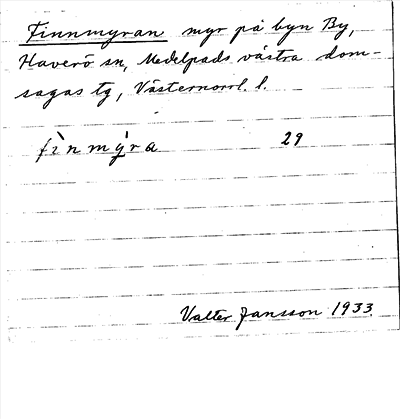 Finnmyran myr på byn By,
Haverö sn, Medelpads västra dom-
sagas tg, Västernorrl. l.
fìnmy�Ìra 29
Valter Jansson 1933.